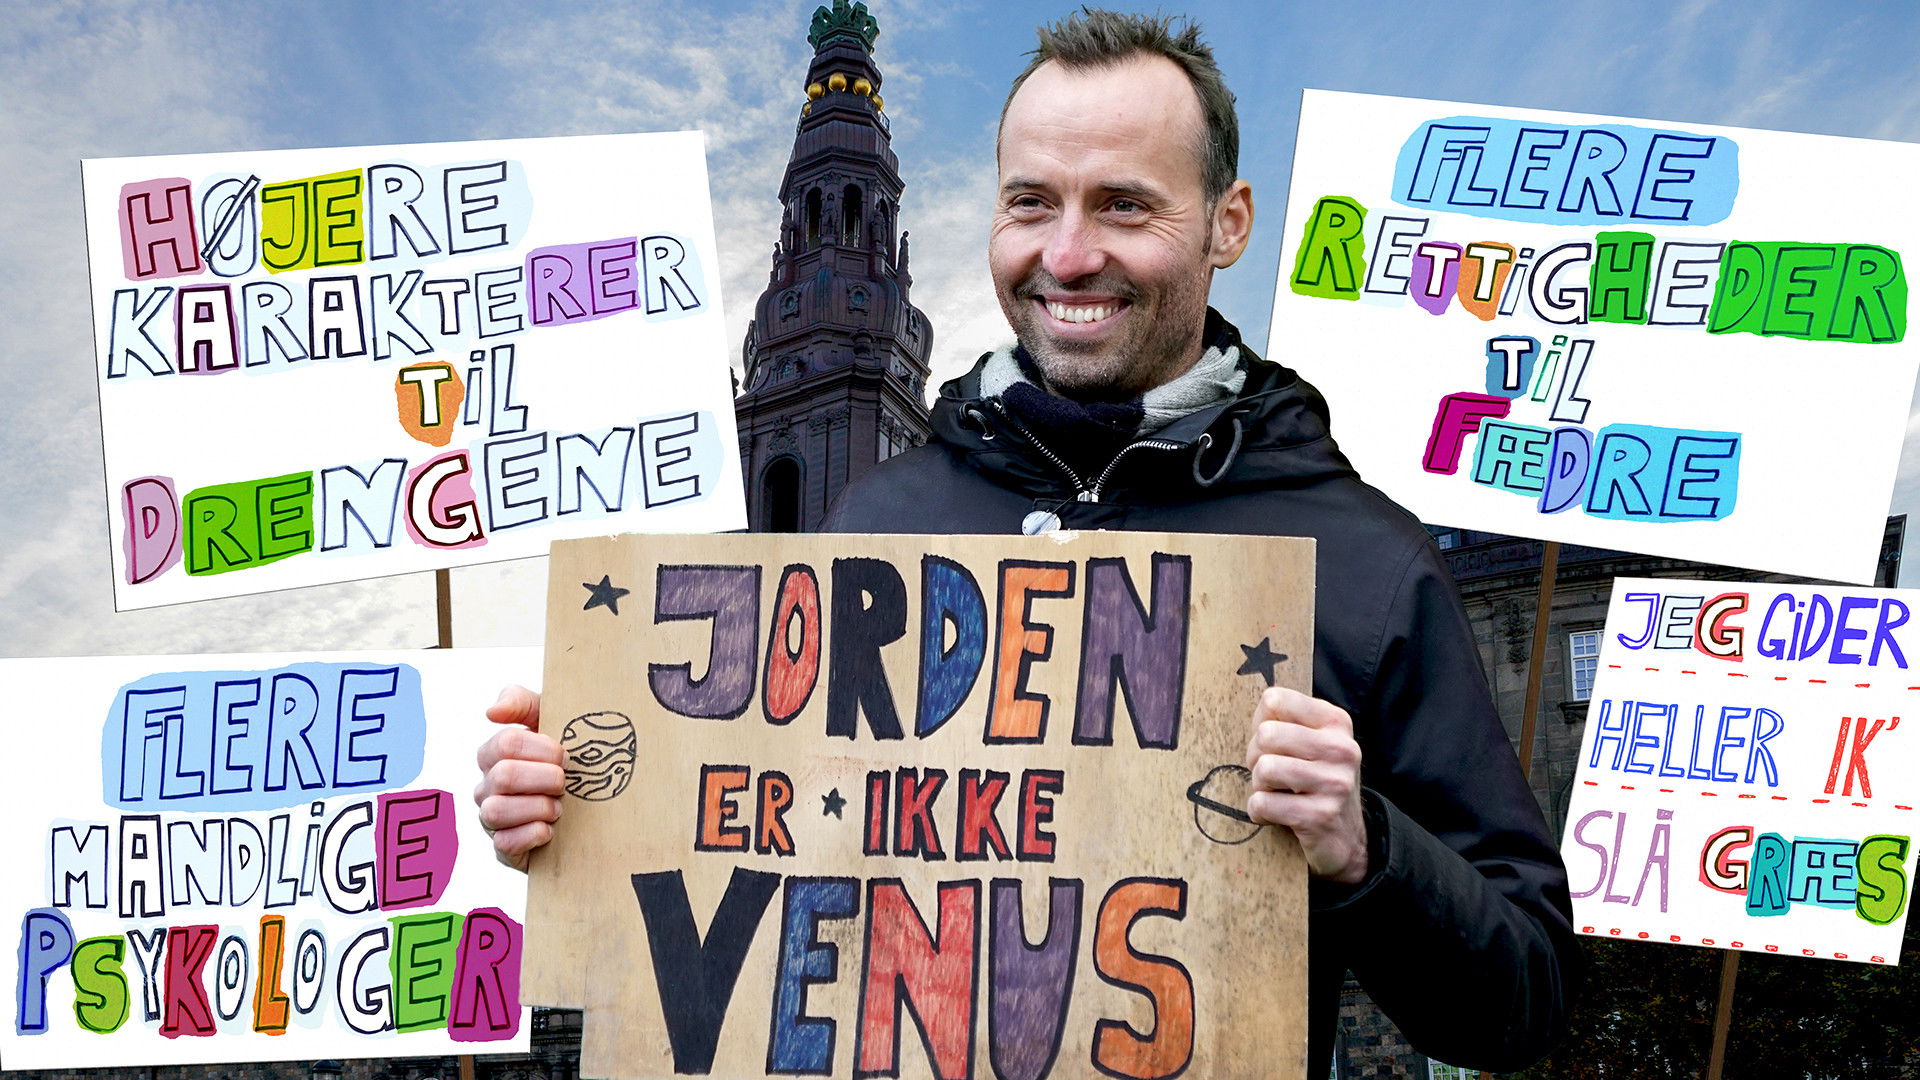 HØJERE
KARAKTERER
TIL
DRENGENE
FLERE
RETTIGHEDER
TIL
FÆDRE
JORDEN
ER IKKE
VENUS
FLERE
MANDLIGE
PSYKOLOGER
JEG GIDER
HELLER IK'
SLÅ GRÆS